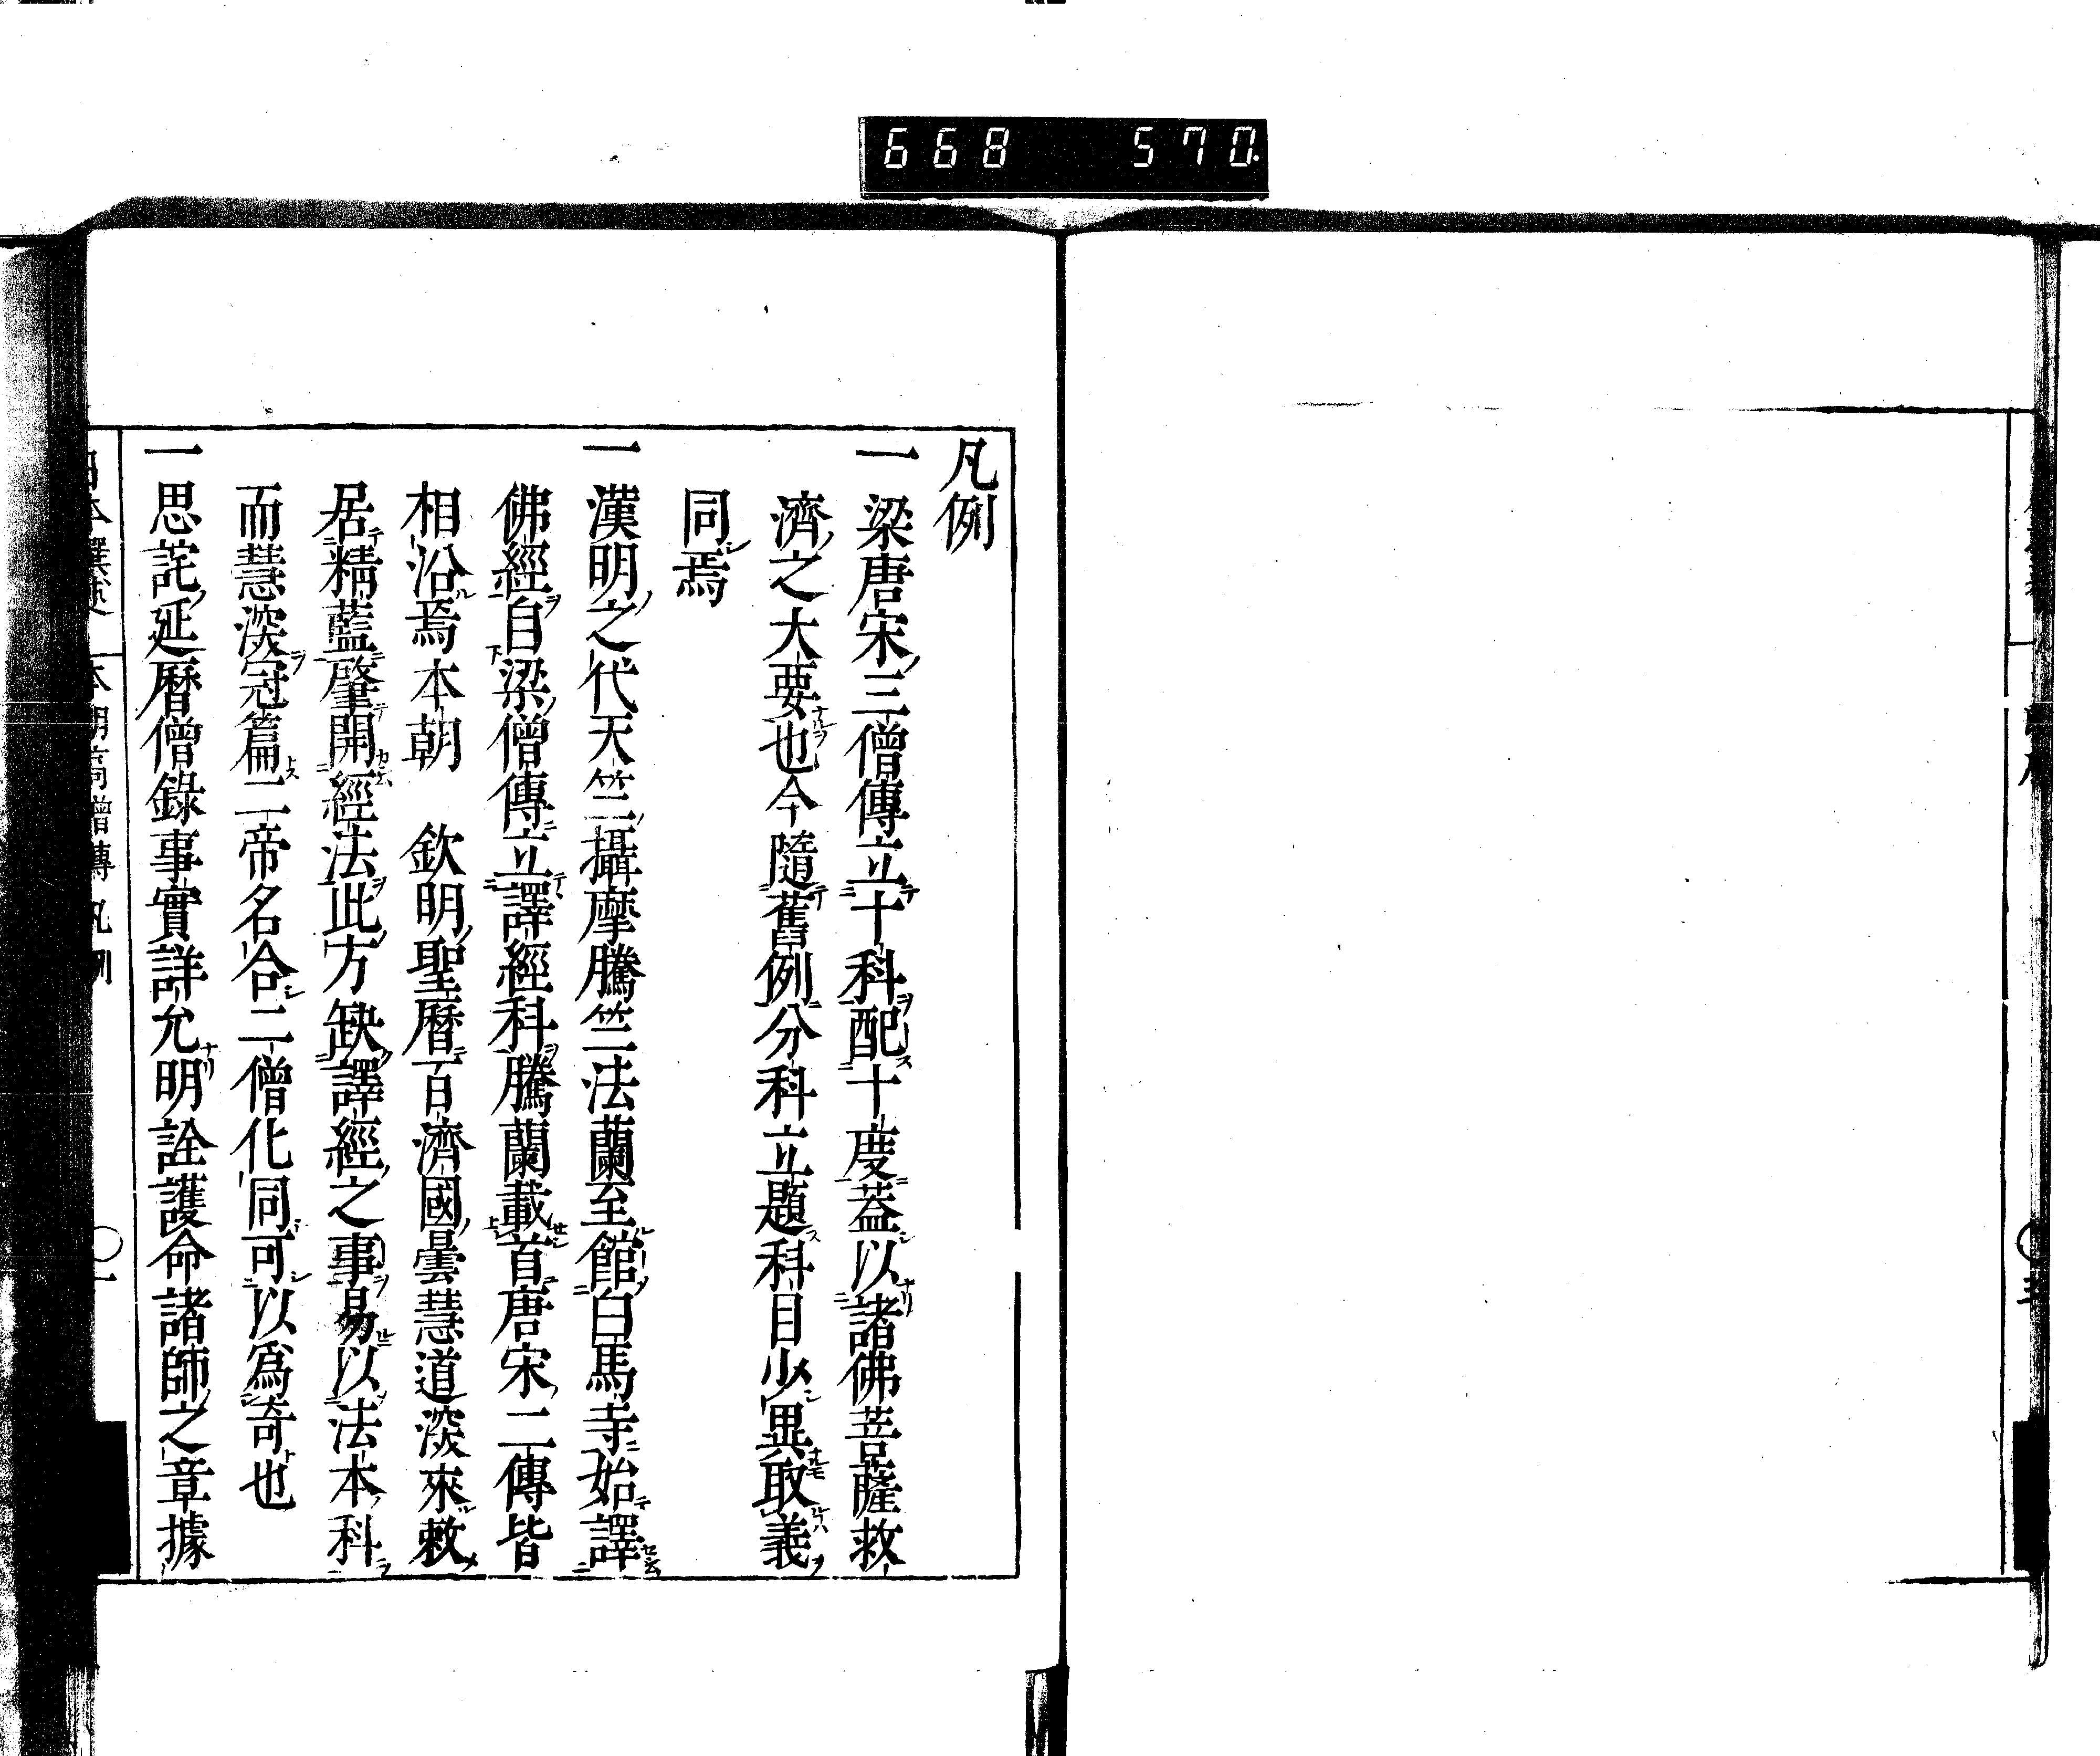 668 570
凡例
一梁唐宋三僧傳立十科配十度蓋以諸佛菩薩救
濟之大要也今隨舊例分科立題科目少異取義
同焉
一漢明之代天竺攝摩騰竺法蘭至館白馬寺始譯
佛經自梁僧傳立譯經科騰蘭載首唐宋二傳皆
相沿焉本朝　欽明聖曆百濟國曇慧道深來敕
居精藍肇開經法此方缺譯經之事易以法本科
而慧深冠篇二帝名合二僧化同可以爲奇也
一思託延曆僧錄事實詳允明詮護命諸師之章據